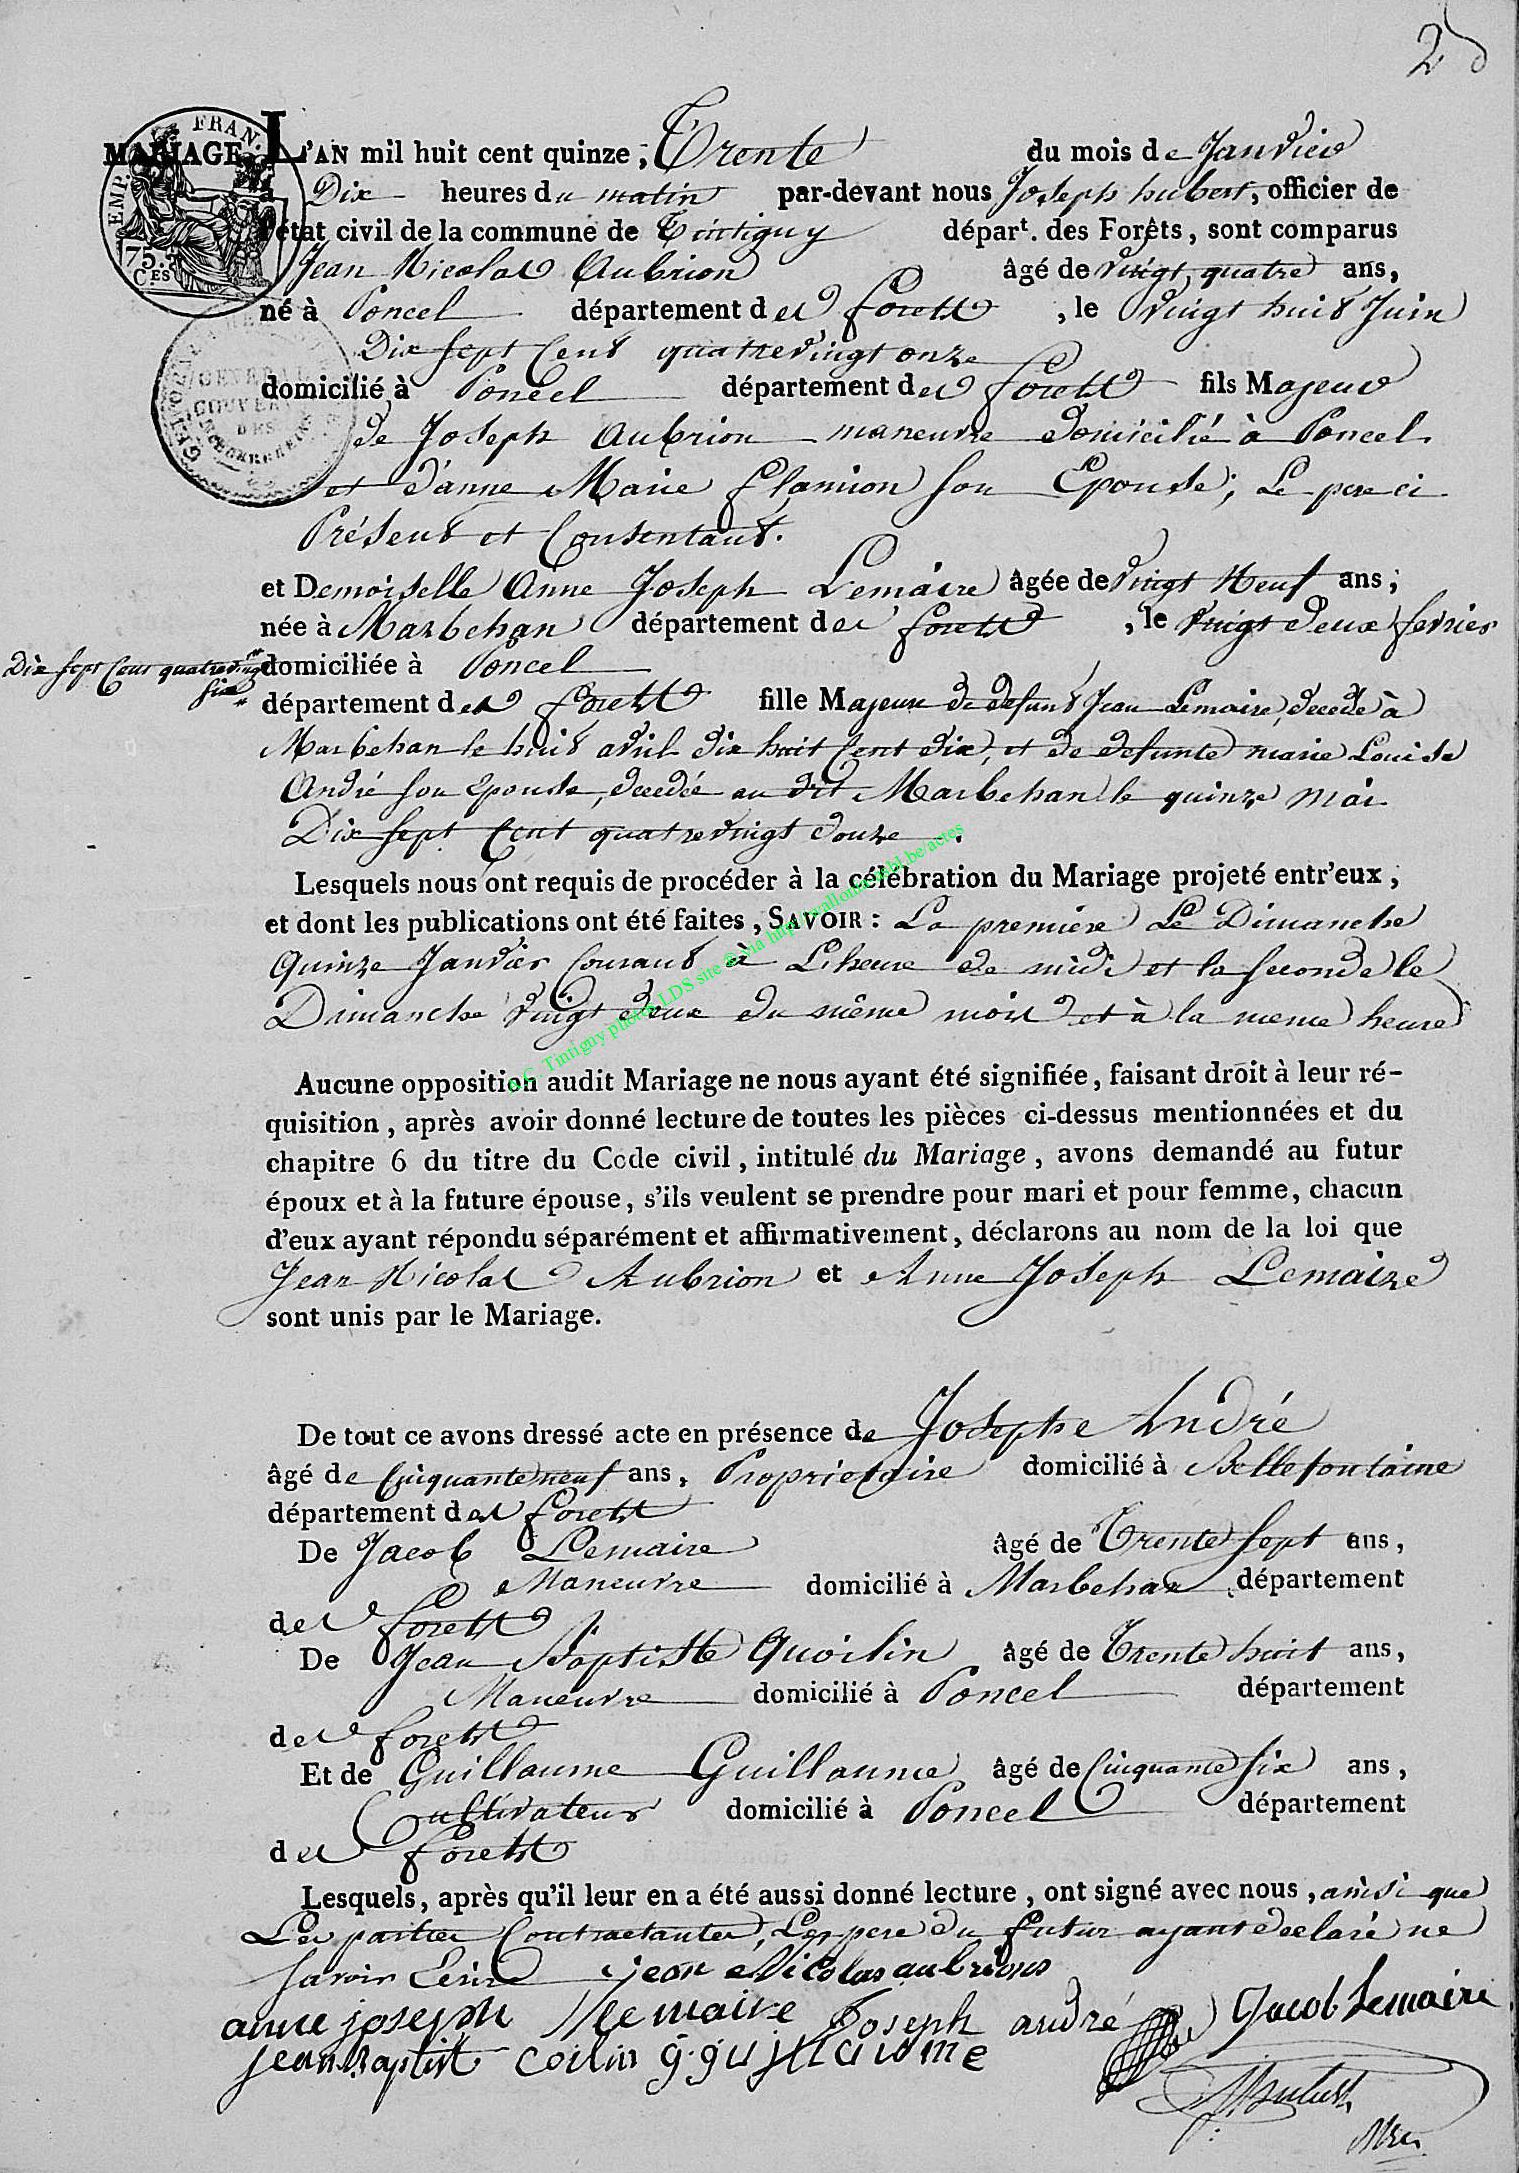 2
MARIAGE. L'AN mil huit cent quinze, Trente du mois de Janvier
à Dix heures du matin par-devant nous Joseph hubert, officier de
l'état civil de la commune de Tintigny départ. des Forêts, sont comparus
Jean Nicolas Aubrion âgé de vingt quatre ans,
né à Poncel département des forets, le vingt huit Juin
Dix sept Cent quatrevingt onze
domicilié à Poncel département des forets fils Majeur
de Joseph Aubrion maneuvre domicilié à Poncel
et d'anne Marie flamion son Epouse; Le pere ci
Présent et Consentant.
et Demoiselle Anne Joseph Lemaire âgée de vingt Neuf ans;
née à Marbehan département des forets, le vingt deux fevrier
Dix sept Cent quatrevingt
six
domiciliée à Poncel
département des forets fille Majeure de defunt Jean Lemaire, decedé à
Marbehan le huit avril dix huit Cent dix, et de defunte marie Louise
André son epouse, decedée au dit Marbehan le quinze mai
Dix sept Cent quatrevingt douze.
Lesquels nous ont requis de procéder à la célébration du Mariage projeté entr'eux,
et dont les publications ont été faites, SAVOIR: La premiere Le Dimanche
Quinze Janvier Courant à L'heure de midi et la seconde le
Dimanche vingt deux du même mois et à la meme heure
Aucune opposition audit Mariage ne nous ayant été signifiée, faisant droit à leur ré-
quisition, après avoir donné lecture de toutes les pièces ci-dessus mentionnées et du
chapitre 6 du titre du Code civil, intitulé du Mariage, avons demandé au futur
époux et à la future épouse, s'ils veulent se prendre pour mari et pour femme, chacun
d'eux ayant répondu séparément et affirmativement, déclarons au nom de la loi que
Jean Nicolas Aubrion et Anne Joseph Lemaire
sont unis par le Mariage.
De tout ce avons dressé acte en présence de Josephe André
âgé de Cinquante neuf ans, Proprietaire domicilié à Bellefontaine
département des forets
De Jacob Lemaire âgé de Trente Sept ans,
Maneuvre domicilié à Marbehan département
des forets
De Jean Baptiste Quoilin âgé de Trente huit ans,
Maneuvre domicilié à Poncel département
des forets
Et de Guillaume Guillaume âgé de Cinquante six ans,
Cultivateur domicilié à Poncel département
des forets
Lesquels, après qu'il leur en a été aussi donné lecture, ont signé avec nous, ainsi que
Les parties Contractantes, Le pere du futur ayant declaré ne
savoir Ecrire jean Nicolas aubrion
anne joseph lemaire Joseph andré Jacob Lemaire
jean baptist coilin g. guillaume
Hubert
EMP. FRAN.
75.
CES
GENERAL
GOUVER
DES
A.C. Tintigny photos LDS site © via http://wallonia-asbl.be/actes